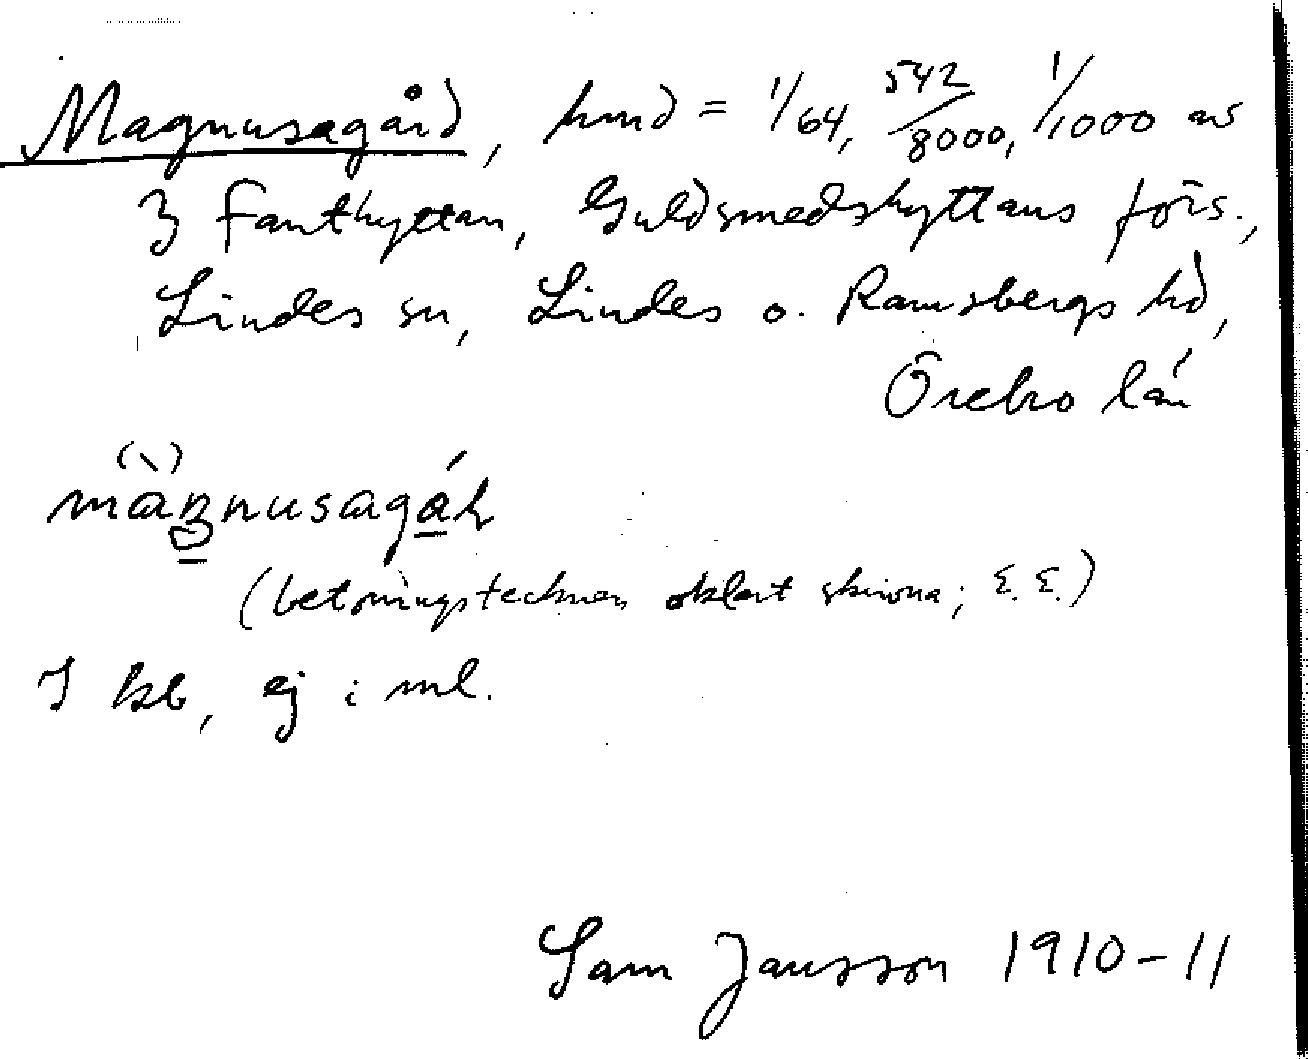 Magnusagård, hmd = 1/64, 542/8000, 1/1000 av
3 Fanthyttan, Guldsmedshyttans förs.,
Lindes sn, Lindes o. Ramsbergs hd,
Örebro län
(betoningstecknen oklart skrivna; E. E.)
I kb, ej i ml.
Sam Jansson 1910-11